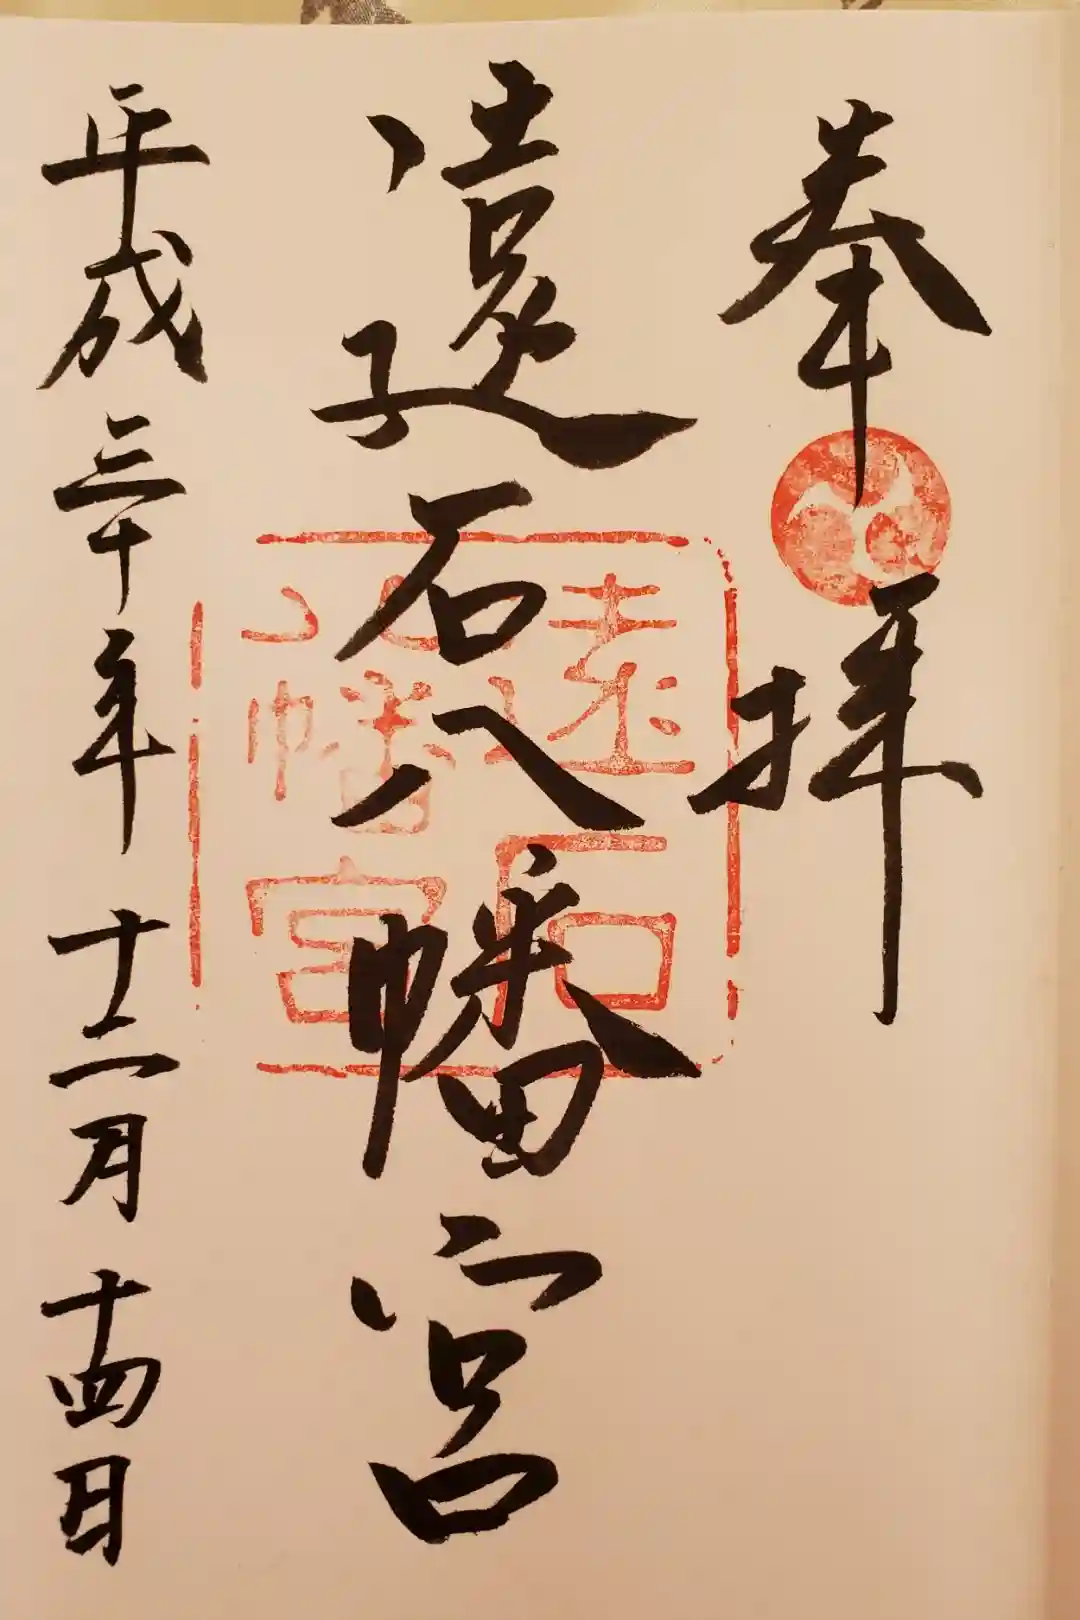 奉拝
遠石八幡宮
平成三十年十二月十四日
遠石
八幡宮